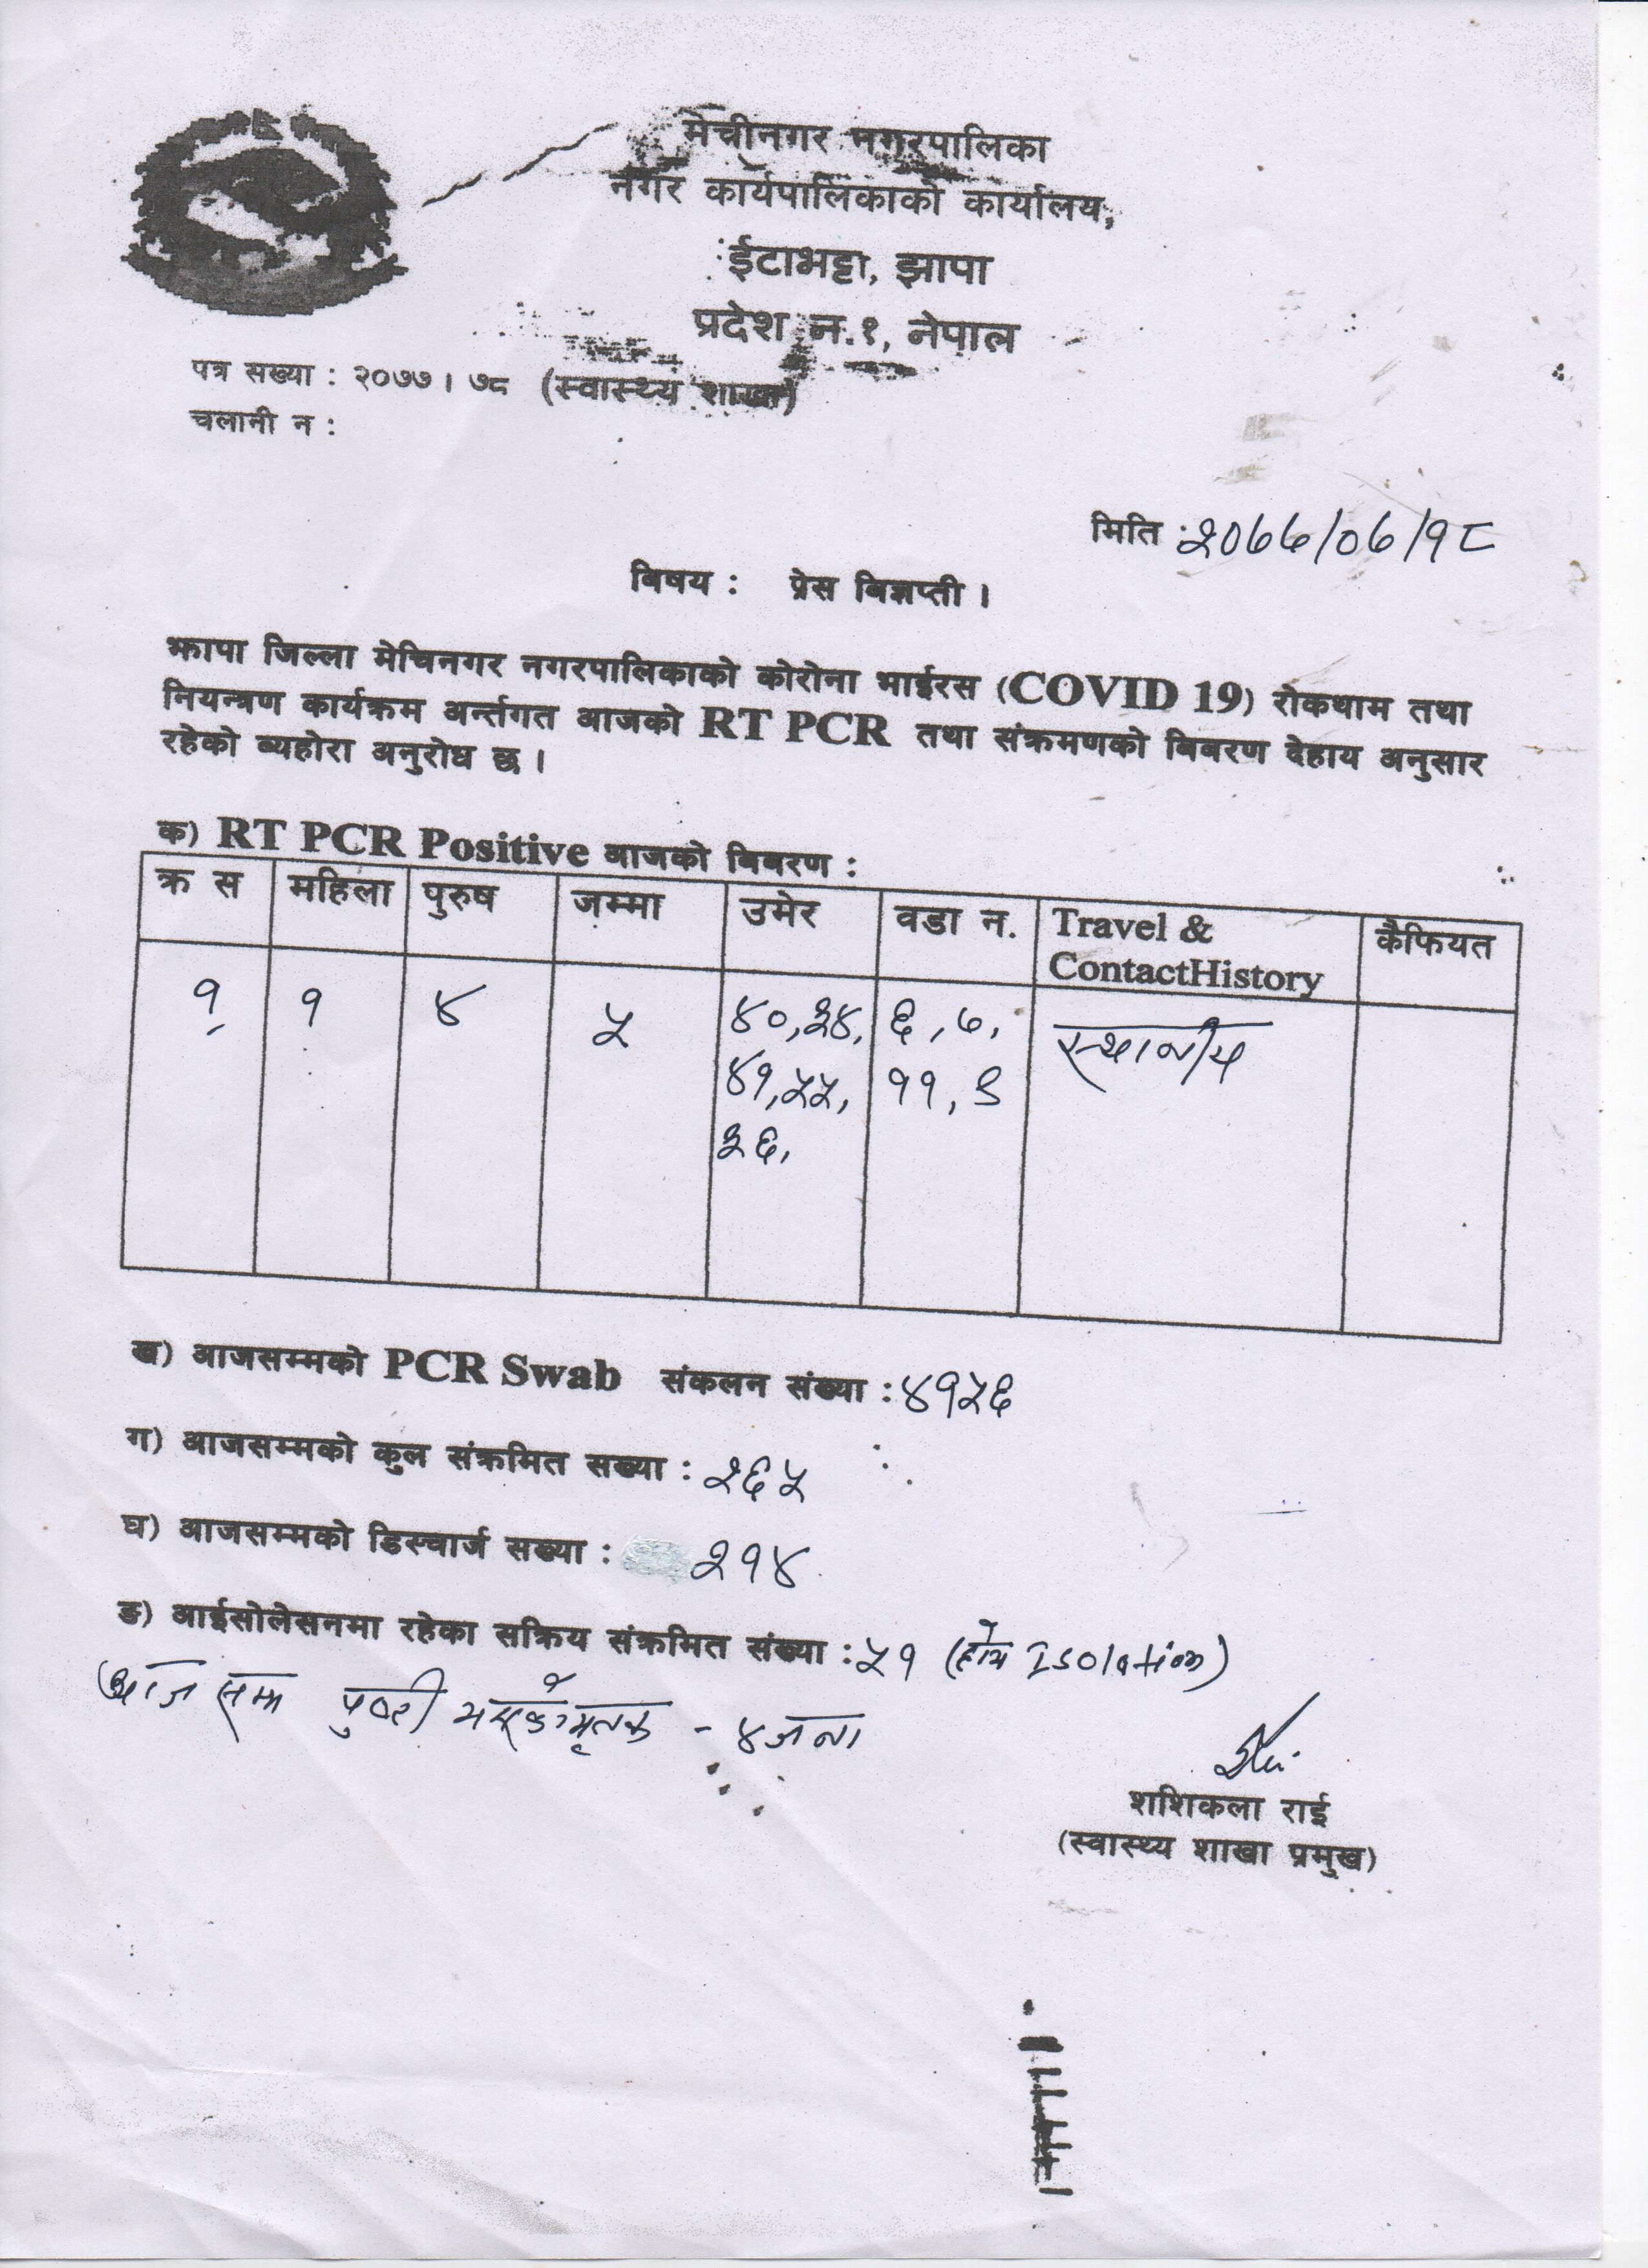 मेचीनगर नगरपालिका
नगर कार्यपालिकाको कार्यालय,
ईटाभट्टा, झापा
प्रदेश न.१, नेपाल
पत्र सख्या : २०७७ । ७८ (स्वास्थ्य शाखा)
चलानी न :
मिति : २०७७/०७/१८
बिषय : प्रेस बिज्ञप्ती ।
झापा जिल्ला मेचिनगर नगरपालिकाको कोरोना भाईरस (COVID 19) रोकथाम तथा
नियन्त्रण कार्यक्रम अर्न्तगत आजको RT PCR तथा संक्रमणको बिबरण देहाय अनुसार
रहेको ब्यहोरा अनुरोध छ ।
क) RT PCR Positive आजको बिबरण :
क्र स महिला पुरुष जम्मा उमेर वडा न. Travel & ContactHistory कैफियत
१ १ ४ ५ ४०,३४, ६,७, स्थानीय
४१,५५, ११, ९
३६,
ख) आजसम्मको PCR Swab संकलन संख्या : ४१५६
ग) आजसम्मको कुल संक्रमित सख्या : २६५
घ) आजसम्मको डिस्चार्ज सख्या : २१४
ङ) आईसोलेसनमा रहेका सक्रिय संक्रमित संख्या : ५१ (होम Isolation)
आज सम्म पुष्टी मृतक - ४ जना
शशिकला राई
(स्वास्थ्य शाखा प्रमुख)